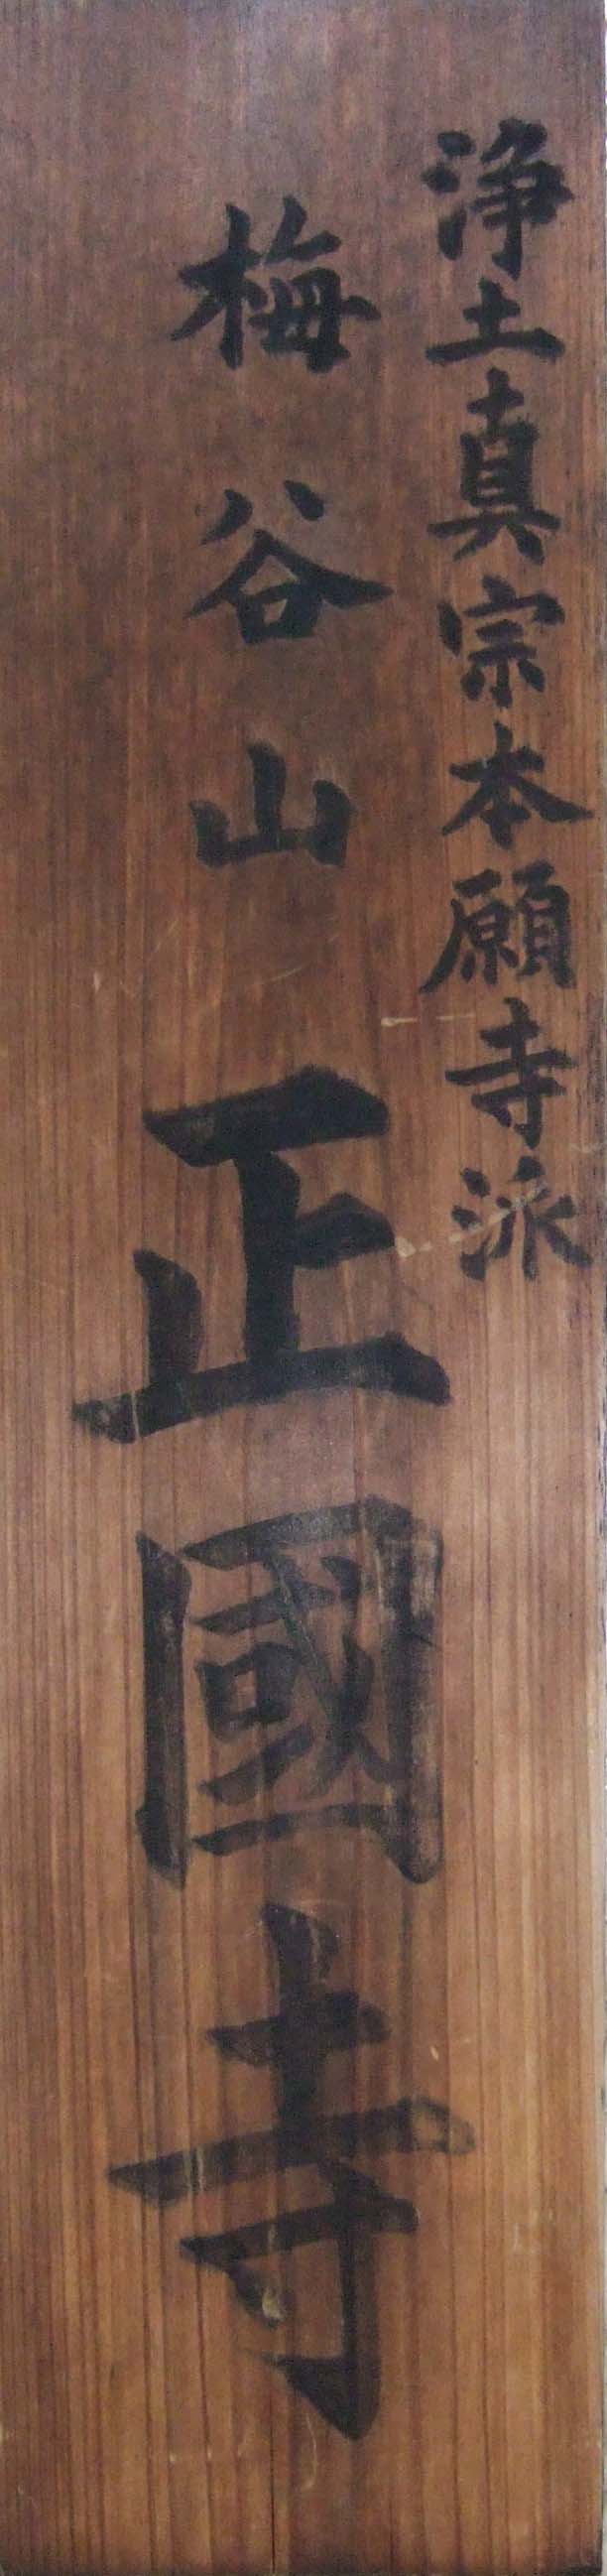 浄土真宗本願寺派
梅谷山
正國寺